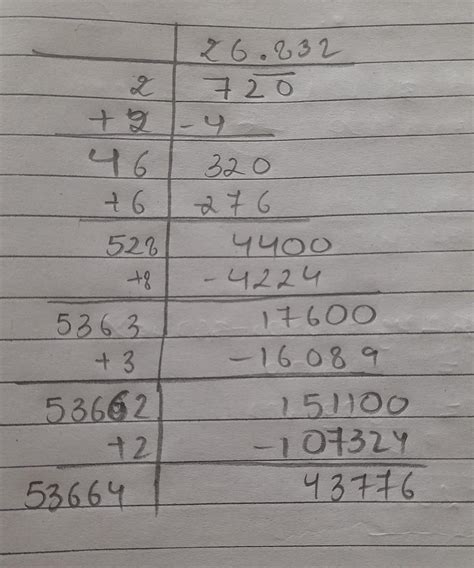 26.832
2 720
+2 -4
46 320
+6 -276
528 4400
+8 -4224
5363 17600
+3 -16089
53662 151100
+2 -107324
53664 43776